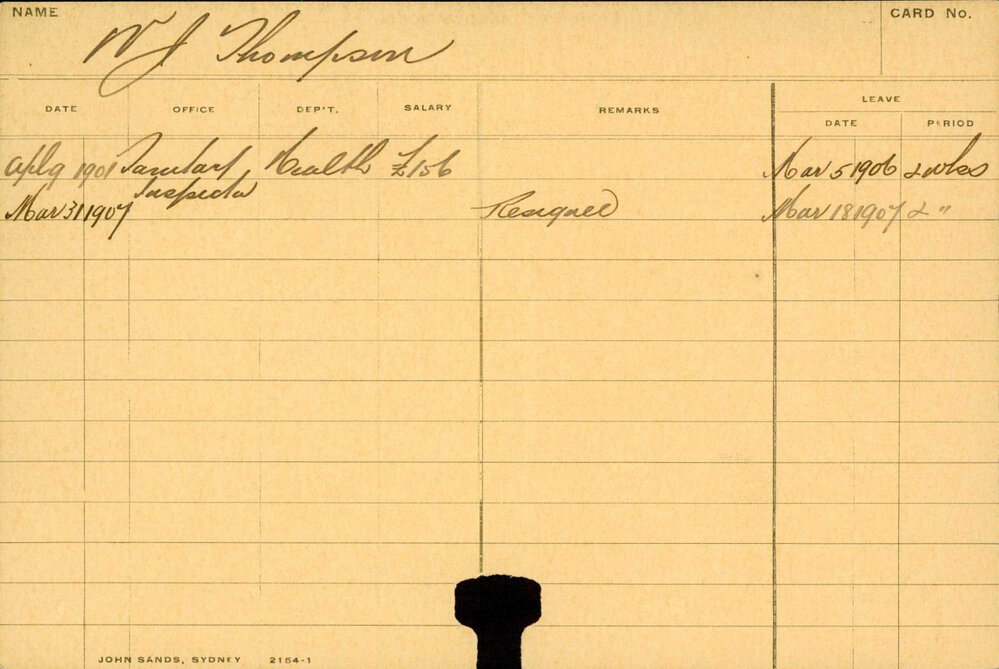 NAME
CARD No.
W J Thompson
DATE OFFICE DEP'T. SALARY REMARKS LEAVE
DATE PERIOD
Apl 9 1901 Sanitary Health £156 Mar 5 1906 2 wks
Inspector
Mar 31 1907 Resigned Mar 18 1907 2 "
JOHN SANDS, SYDNEY 2154-1